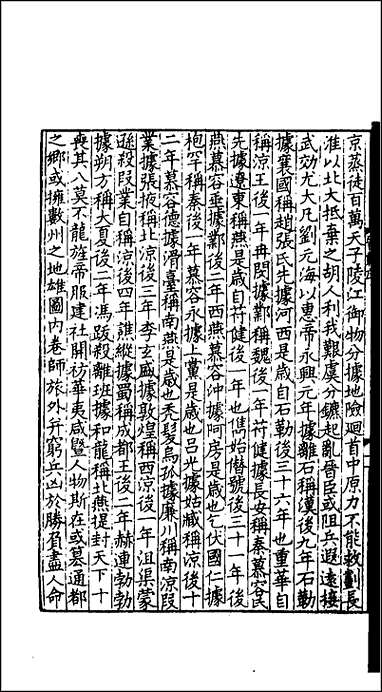 京蒸徒百萬天子陵江御物分據地險迴首中原力不能救劃長
淮以北大抵棄之胡人利我艱虞分鑣起亂晉臣或阻兵遐遠接
武効尤大凡劉元海以惠帝永興元年據離石稱漢後九年石勒
據襄國稱趙張氏先據河西是歲自石勒後三十六年也重華自
稱涼王後一年冉閔據鄴稱魏後一年苻健據長安稱秦慕容氏
先據遼東稱燕是歲自苻健後一年也儁始僭號後三十一年後
燕慕容垂據鄴後二年西燕慕容沖據阿房是歲也乞伏國仁據
枹罕稱秦後一年慕容永據上黨是歲也呂光據姑臧稱涼後十
二年慕容德據滑臺稱南燕是歲也禿髮烏孤據廉川稱南涼段
業據張掖稱北涼後三年李玄盛據敦煌稱西涼後一年沮渠蒙
遜殺段業自稱涼後四年譙縱據蜀稱成都王後二年赫連勃勃
據朔方稱大夏後二年馮跋殺離班據和龍稱北燕提封天下十
喪其八莫不龍旌帝服建社開祊華夷咸暨人物斯在或篡通都
之鄉或擁數州之地雄圖內卷師旅外并窮兵凶於勝負盡人命